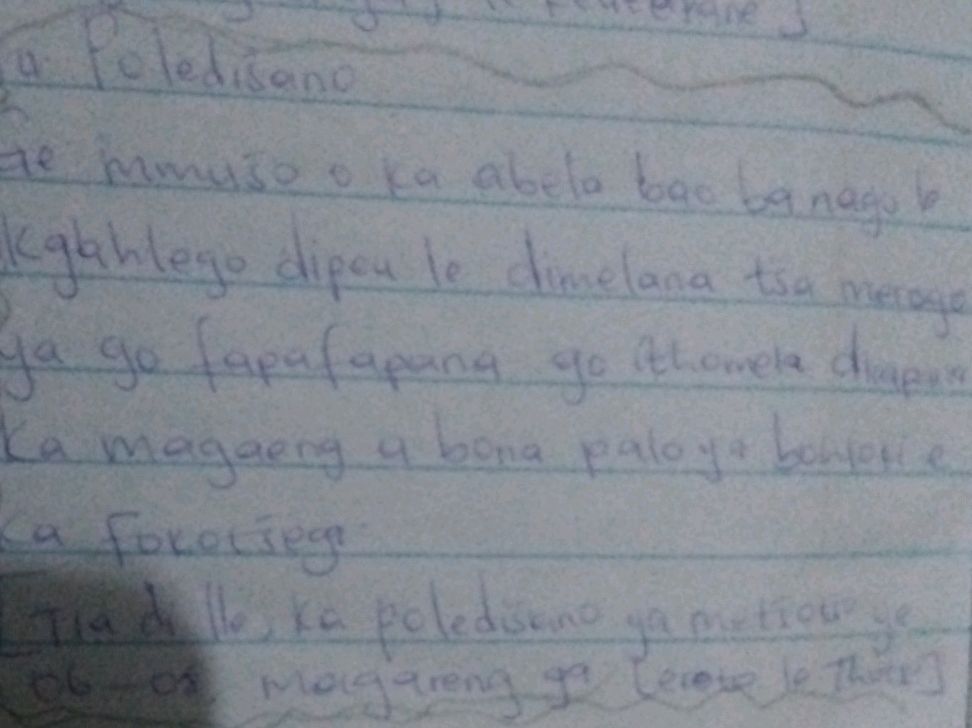 a Poledišano
ge mmušo o ka abela bao ba nago le
kgahlego dipeu le dimelana tša merogo
ya go fapafapana go ithomela dirapana
ka magaeng a bona palo ya bohloki e
ka fokotšega
Tša di lle, ka poledisano ya
06-08 magareng ga [ le Thato]